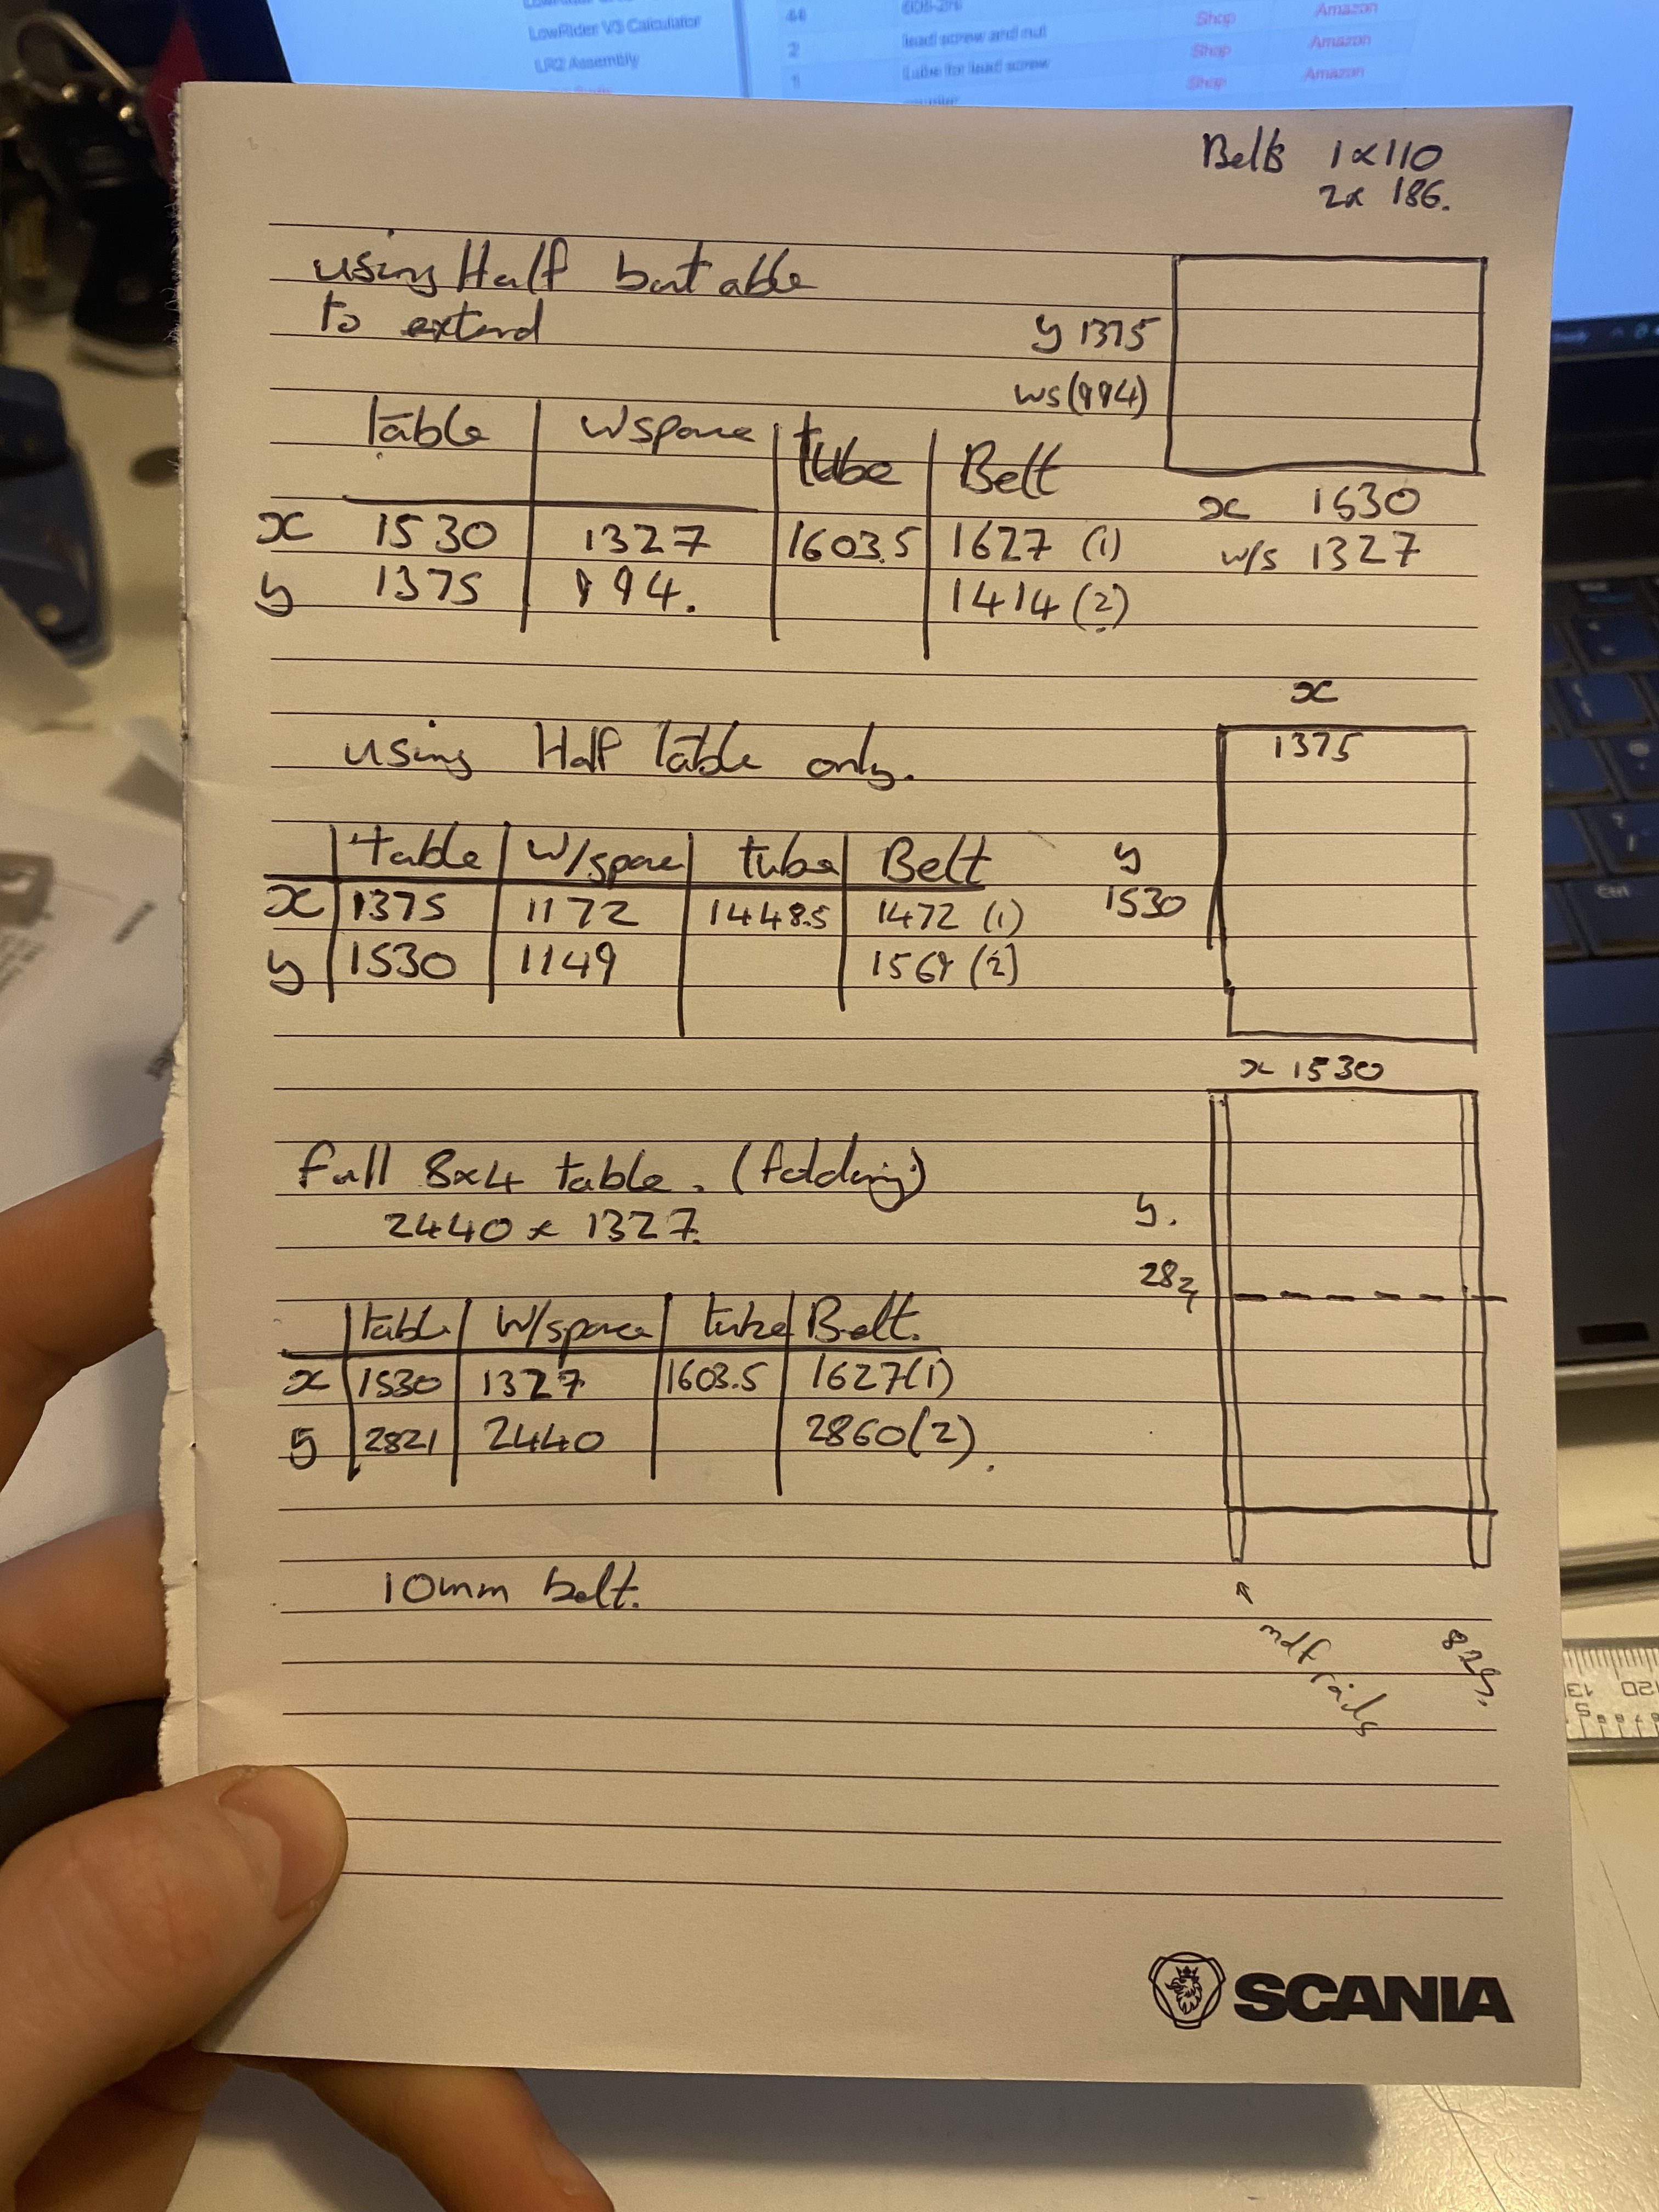 LowRider V3 Calculator
LR2 Assembly
44
2 lead screw and nut Shop Amazon
1 Lube for lead screw Shop Amazon
Shop Amazon
Belts 1x110
2x 186.
using Half but able
to extend
y 1375
ws(994)
table Wspace tube Belt
x 1530 1327 1603.5 1627 (1)
y 1375 994. 1414 (2)
x 1530
w/s 1327
using Half table only.
x
1375
table W/space tube Belt
x 1375 1172 1448.5 1472 (1)
y 1530 1149 1569 (2)
y
1530
x 1530
full 8x4 table. (folding)
2440 x 1327.
y.
282
table W/space tube Belt.
x 1530 1327 1603.5 1627(1)
y 2821 2440 2860(2).
10mm belt.
mdf rails
SCANIA
Ctrl